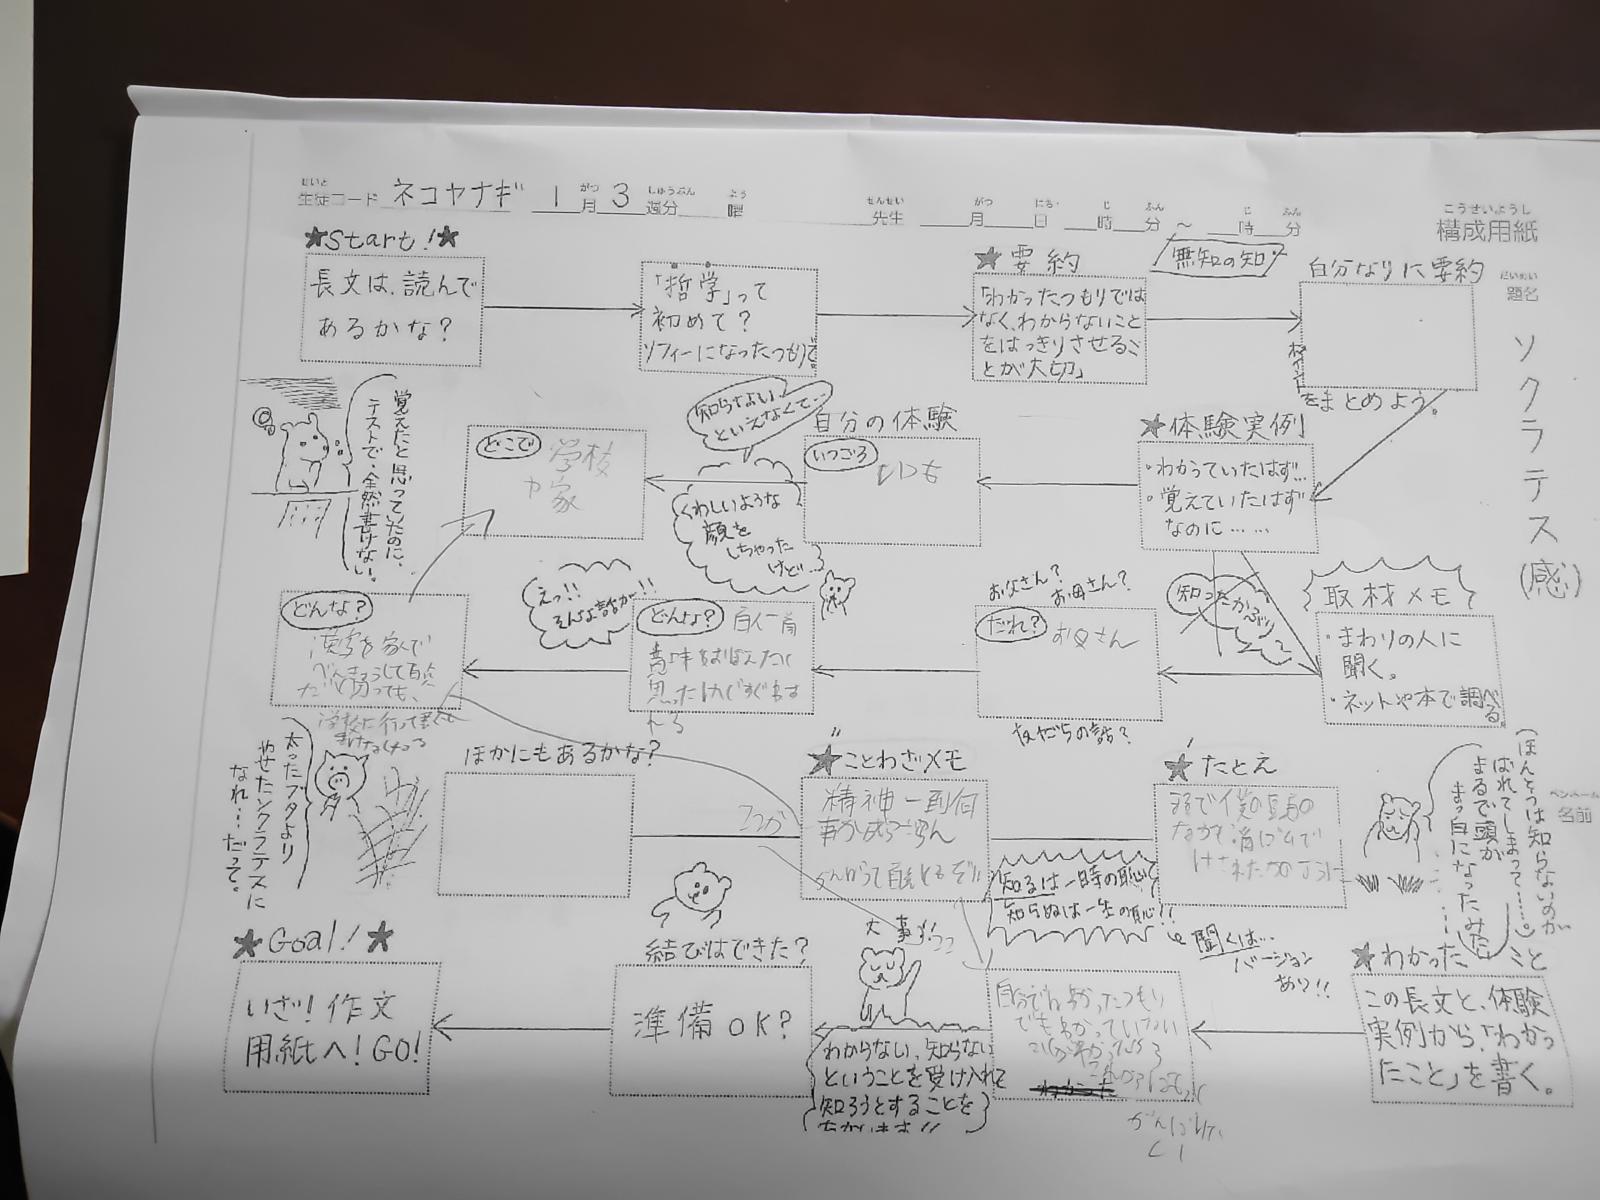 せいと
生徒コード ネコヤナギ 1月3週分 曜 先生 月 日 時 分 ~ 時 分
がつ しゅうぶん よう せんせい がつ にち じ ふん じ ふん
こうせいようし
構成用紙
だいめい
題名
ソクラテス(感)
ペンネーム
名前
★Start!★
長文は、読んで
あるかな?
「哲学」って
初めて?
ソフィーになったつもりで。
★要約
無知の知
「わかったつもりでは
なく、わからないこと
をはっきりさせるこ
とが大切」
自分なりに要約
ポイント
をまとめよう。
★体験実例
・わかっていたはず…
・覚えていたはず
なのに……
自分の体験
いつごろ
いつも
知らない、
といえなくて…
くわしいような
顔を
しちゃった
けど…
どこで
学校
か家
覚えたと思っていたのに、
テストで、全然書けない。
取材メモ
・まわりの人に
聞く。
・ネットや本で調べる。
知ったかぶり
お父さん?
お母さん?
だれ?
お父さん
友だちの話?
どんな?
自分一人前
思ったけどすぐわす
えっ!!
そんな話が…!!
どんな?
漢字を家で
べんきょうして百点
だと思っても、
学校に行って書くと
書けなくなる
太ったブタより
やせたソクラテスに
なれ…だって。
ほかにもあるかな?
★ことわざメモ
精神一到何
事か成らざらん
★たとえ
まるで僕の頭の
なかを消しゴムで
けされたかのように
知るは一時の恥
知らぬは一生の恥!!
聞くは…
バージョン
あり!!
(ほんとうは知らないのが
ばれてしまって……。)
まるで頭が
まっ白になったみた
★わかったこと
この長文と、体験
実例から、「わかっ
たこと」を書く。
自分でわかったつもり
でもわかっていない
これからはもっと
がんばりた
い
大事!!
わからない、知らない
ということを受け入れて
知ろうとすることを
結びはできた?
準備OK?
★Goal!★
いざ!作文
用紙へ!GO!